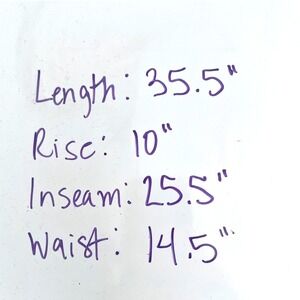 Length: 35.5"
Rise: 10"
Inseam: 25.5"
Waist: 14.5"